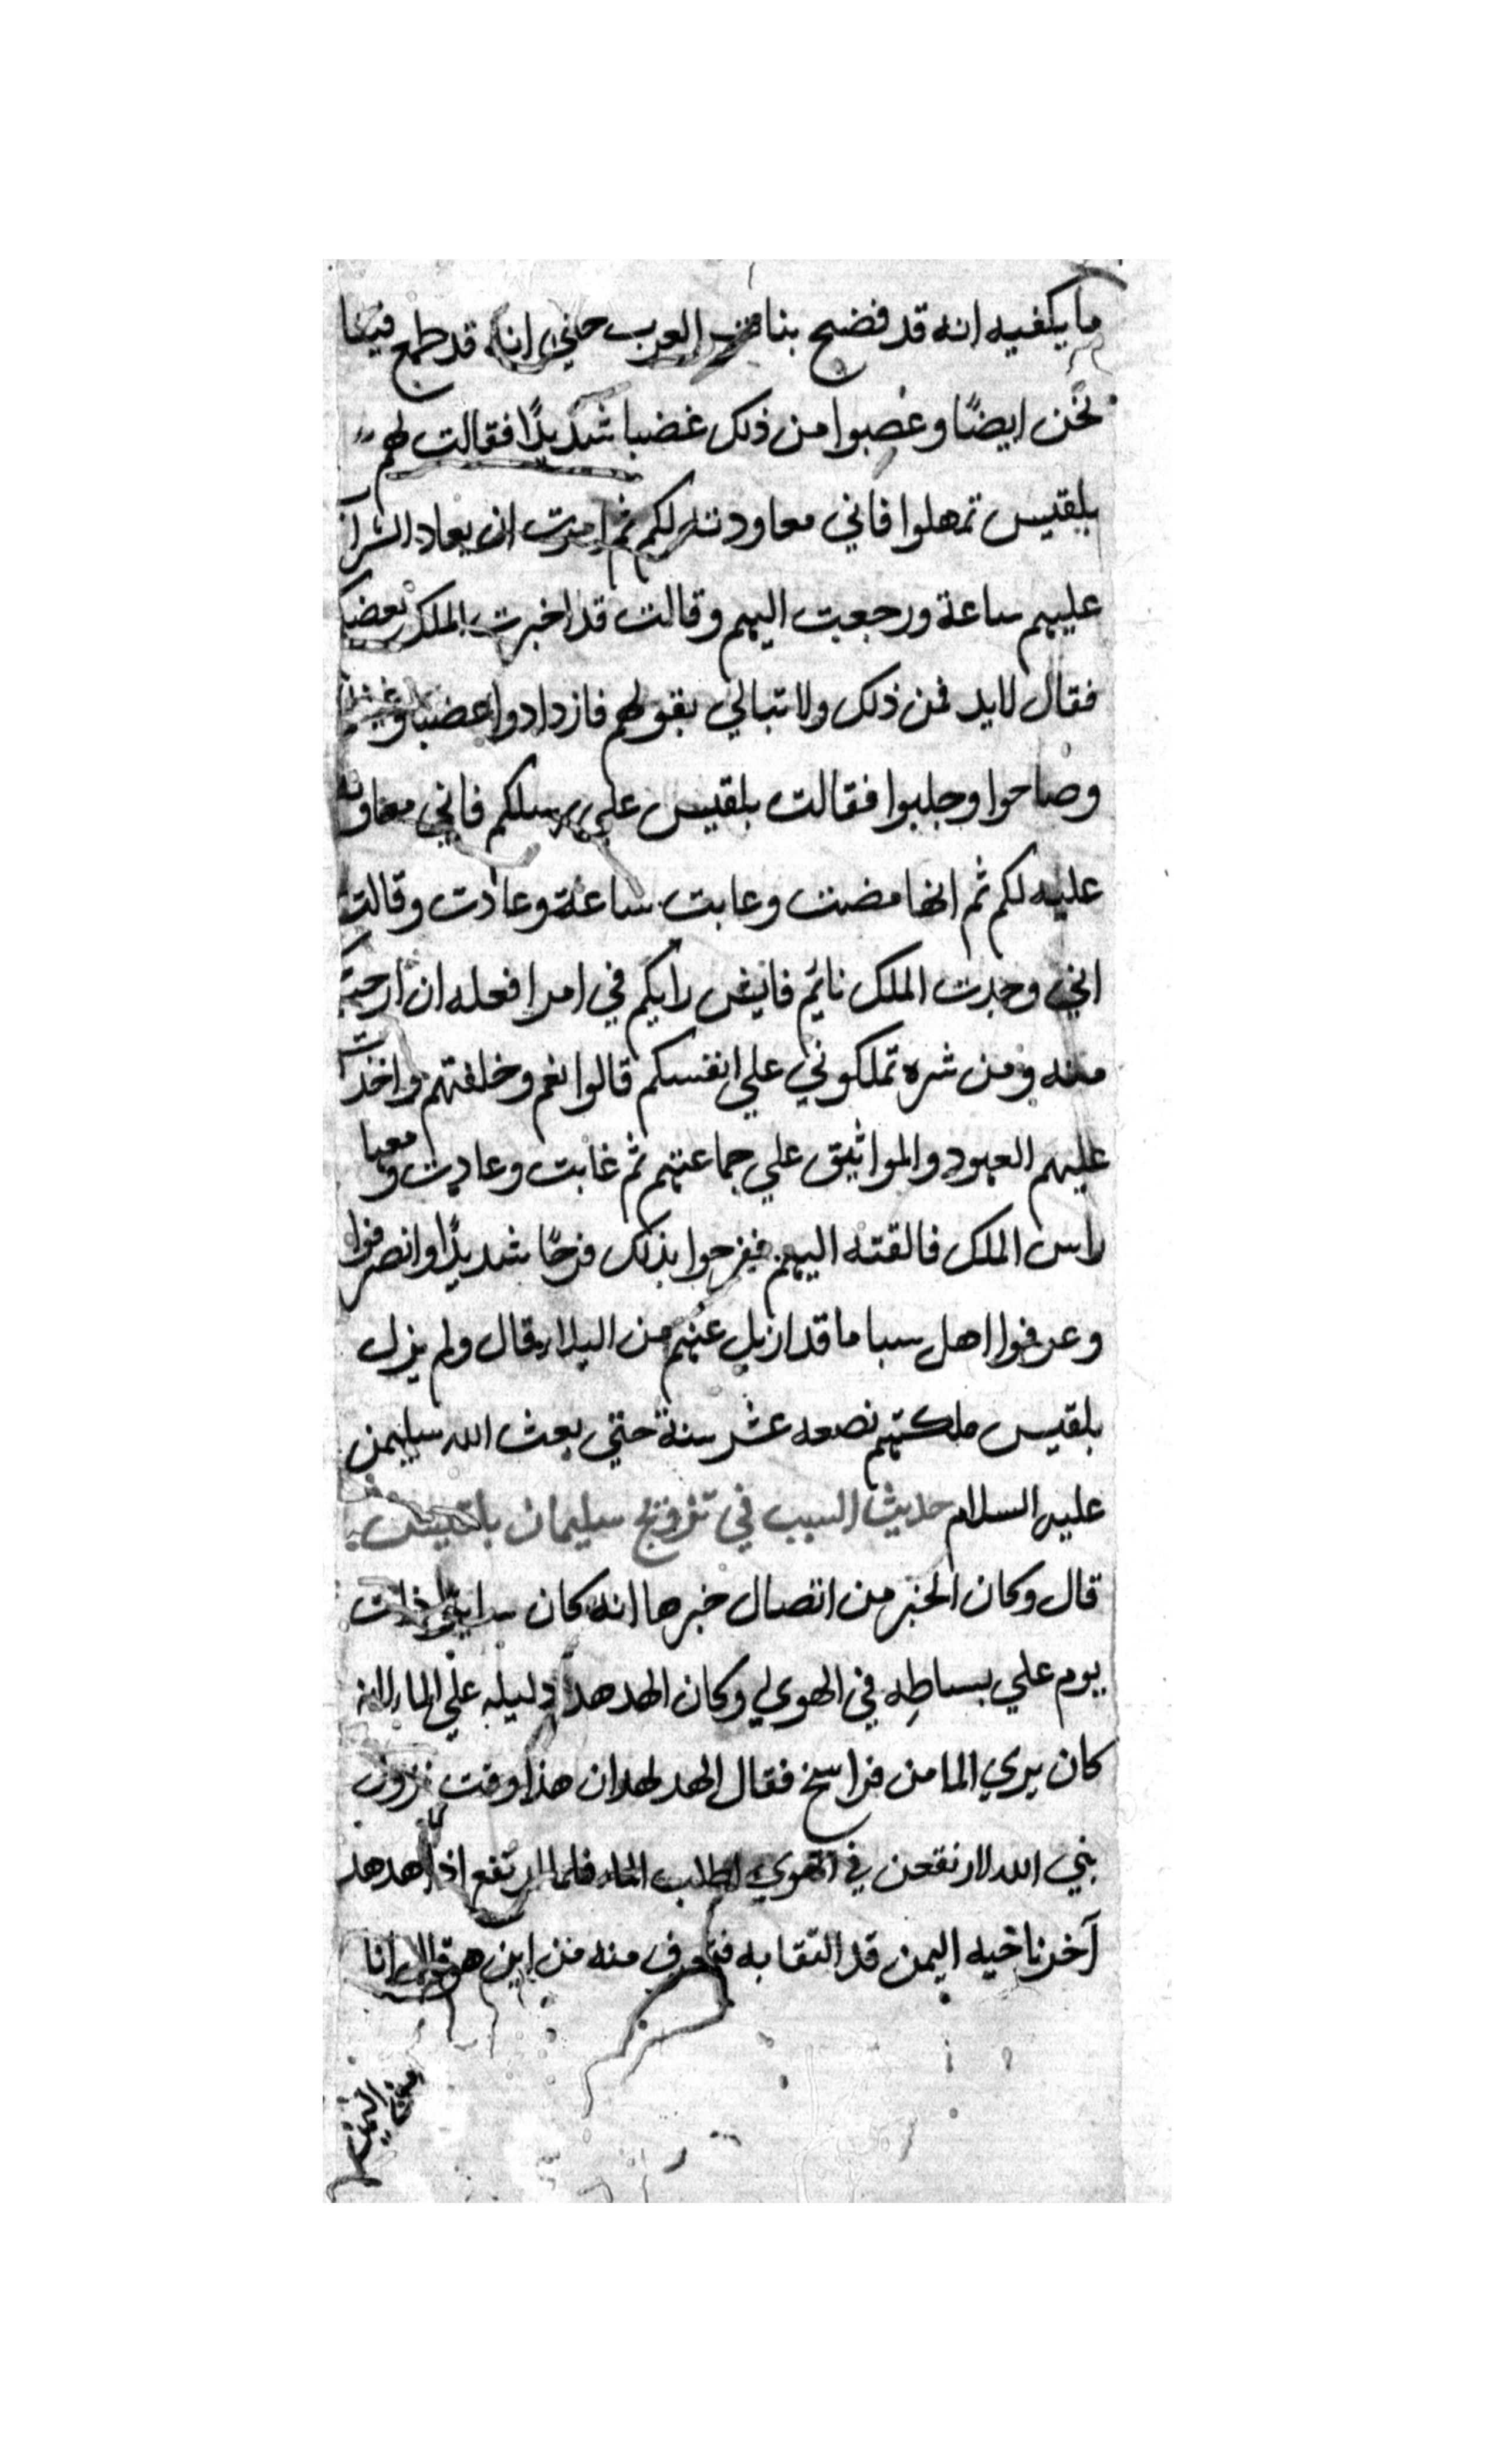 ما يكفيه انه قد فضح بنات العرب حتي انه قد طمع فينا
نحن ايضًا وغضبوا من ذلك غضبا شديدًا فقالت لهم
بلقيس تمهلوا فاني معاودته لكم ثم امرت ان يعاد الشراب
عليهم ساعة ورجعت اليهم وقالت قد اخبرت الملك بغضبكم
فقال لابد من ذلك ولا تبالي بقولهم فازدادوا غضبا
وصاحوا وجلبوا فقالت بلقيس علي رسلكم فاني معاودة
عليه لكم ثم انها مضت وغابت ساعة وعادت وقالت
اني وجدت الملك نائم فايش رايكم في امر افعله ان ارحتكم
منه ومن شره تملكوني علي انفسكم قالوا نعم وحلفتهم واخذت
عليهم العهود والمواثيق علي جماعتهم ثم غابت وعادت ومعها
راس الملك فالقته اليهم ففرحوا بذلك فرحًا شديدًا وانصرفوا
وعرفوا اهل سبا ما قد ازيل عنهم من البلا قال ولم يزل
بلقيس ملكتهم بضعه عشر سنة حتي بعث الله سليمن
عليه السلام حديث السبب في تزويج سليمان بلقيس
قال وكان الخبر من اتصال خبرها انه كان ذات
يوم علي بساطه في الهوي وكان الهدهد دليله علي الما لانه
كان يري الما من فراسخ فقال الهدهد ان هذا وقت نزول
نبي الله لارتفعن في الهوي لطلب الماء فلما ارتفع اذا هدهد
آخر ناحيه اليمن قد التقا به فتعرف منه من اين هو قال انا
من اليمن